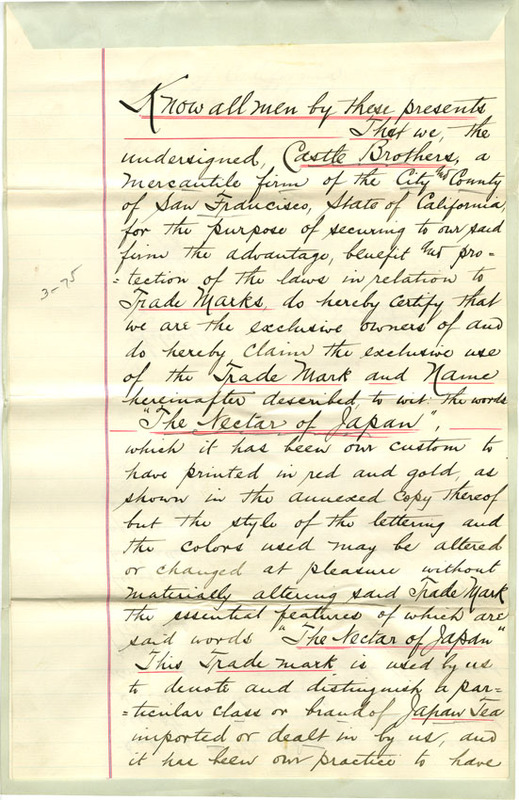 Know all men by these presents
That we, the
undersigned, Castle Brothers, a
Mercantile firm of the City and County
of San Francisco, State of California,
for the purpose of securing to our said
firm the advantage, benefit and pro-
=tection of the laws in relation to
Trade Marks, do hereby certify that
we are the exclusive owners of and
do hereby claim the exclusive use
of the Trade Mark and Name
hereinafter described, to wit: the words
"The Nectar of Japan",
which it has been our custom to
have printed in red and gold, as
shown in the annexed copy thereof
but the style of the lettering and
the colors used may be altered
or changed at pleasure without
materially altering said Trade Mark
the essential features of which are
said words "The Nectar of Japan"
This Trade mark is used by us
to denote and distinguish a par=
=ticular class or brand of Japan Tea
imported or dealt in by us, and
it has been our practice to have
3-75